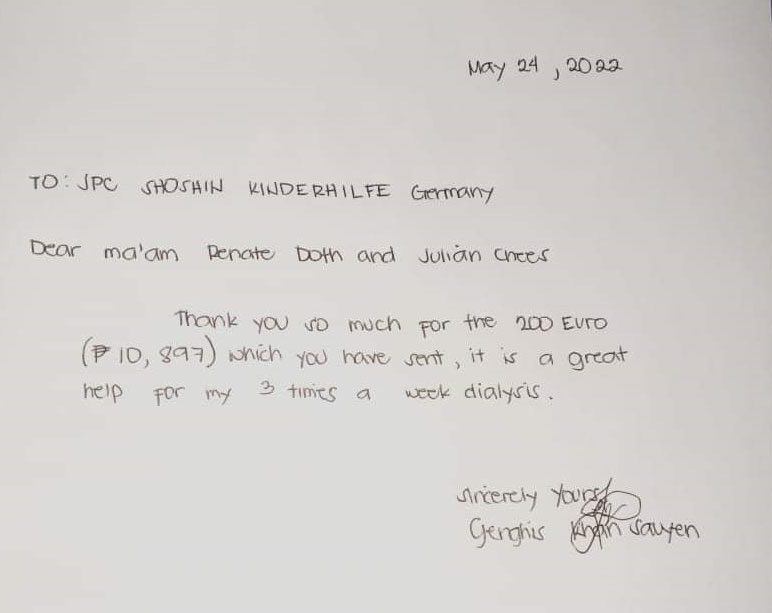 May 24, 2022
TO: JPC SHOSHIN KINDERHILFE Germany
Dear ma'am Renate Doth and Julian Chees
Thank you so much for the 200 Euro
(₱ 10, 897) which you have sent, it is a great
help for my 3 times a week dialysis.
Sincerely Yours,
Genghis Khan Sauyen